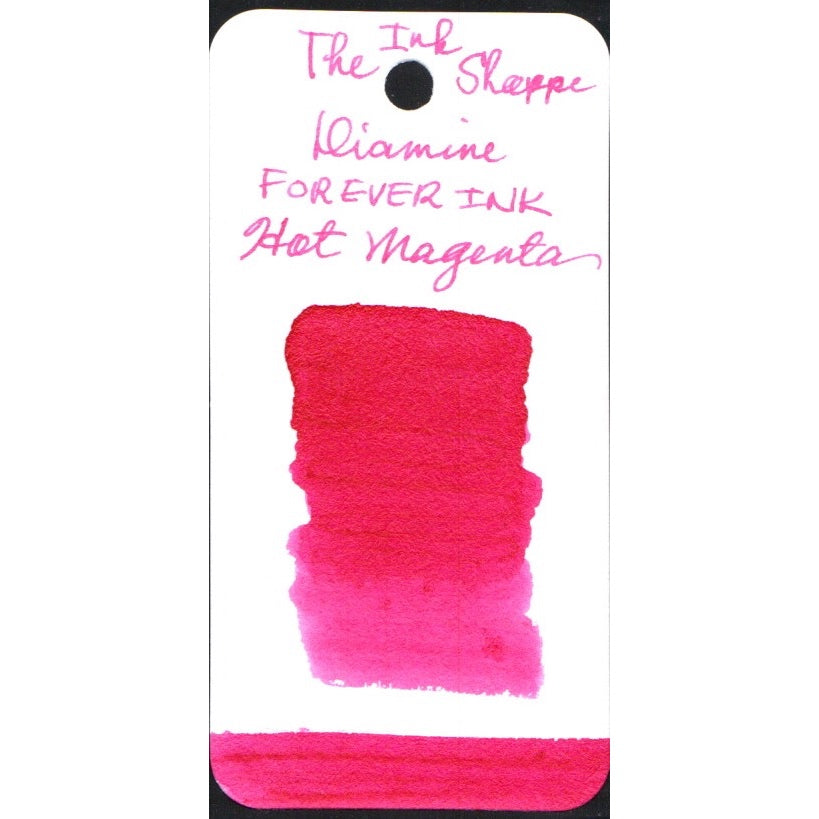 The Ink Shoppe
Diamine
FOREVER INK
Hot Magenta